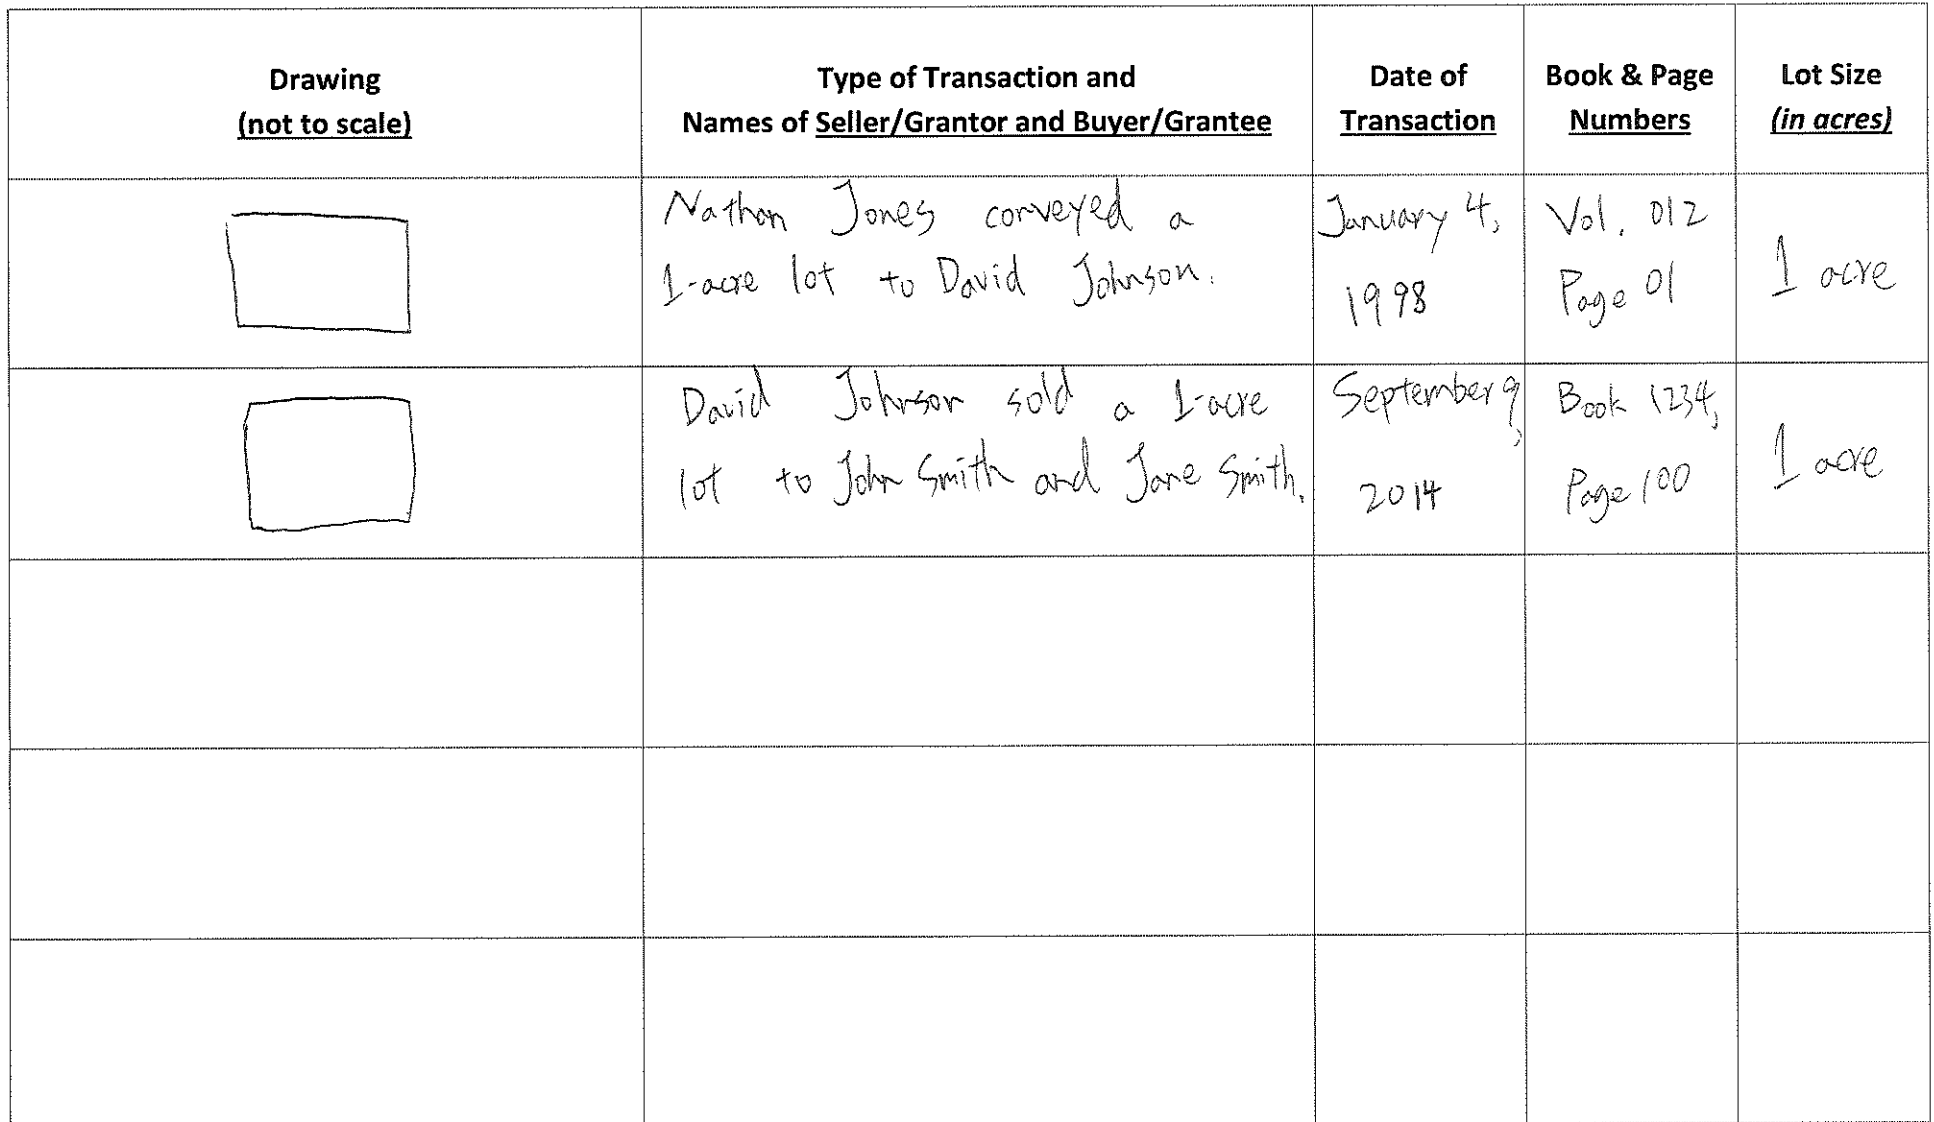 Drawing
(not to scale)
Type of Transaction and
Names of Seller/Grantor and Buyer/Grantee
Date of
Transaction
Book & Page
Numbers
Lot Size
(in acres)
Nathan Jones conveyed a
1-acre lot to David Johnson.
January 4,
1998
Vol. 012
Page 01
1 acre
David Johnson sold a 1-acre
lot to John Smith and Jane Smith.
September 9,
2014
Book 1234,
Page 100
1 acre